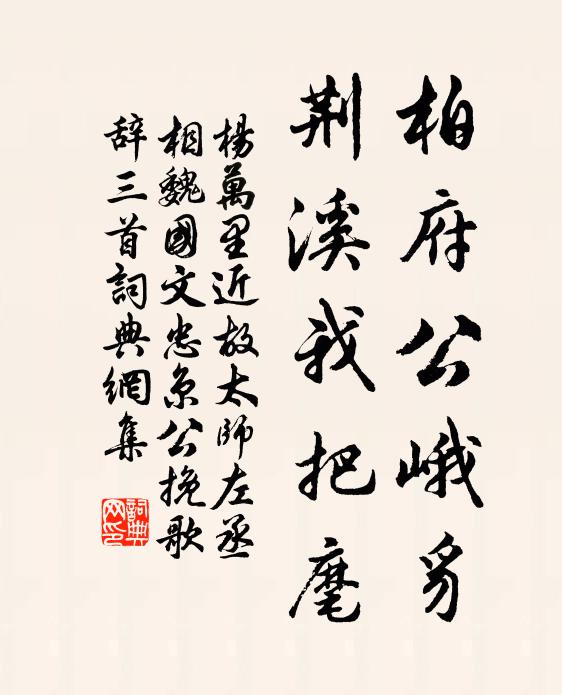 柏府公峨豸
荆溪我把麾
楊萬里近故太師左丞
相魏國文忠京公挽歌
辞三首詞典網集
詞典网印